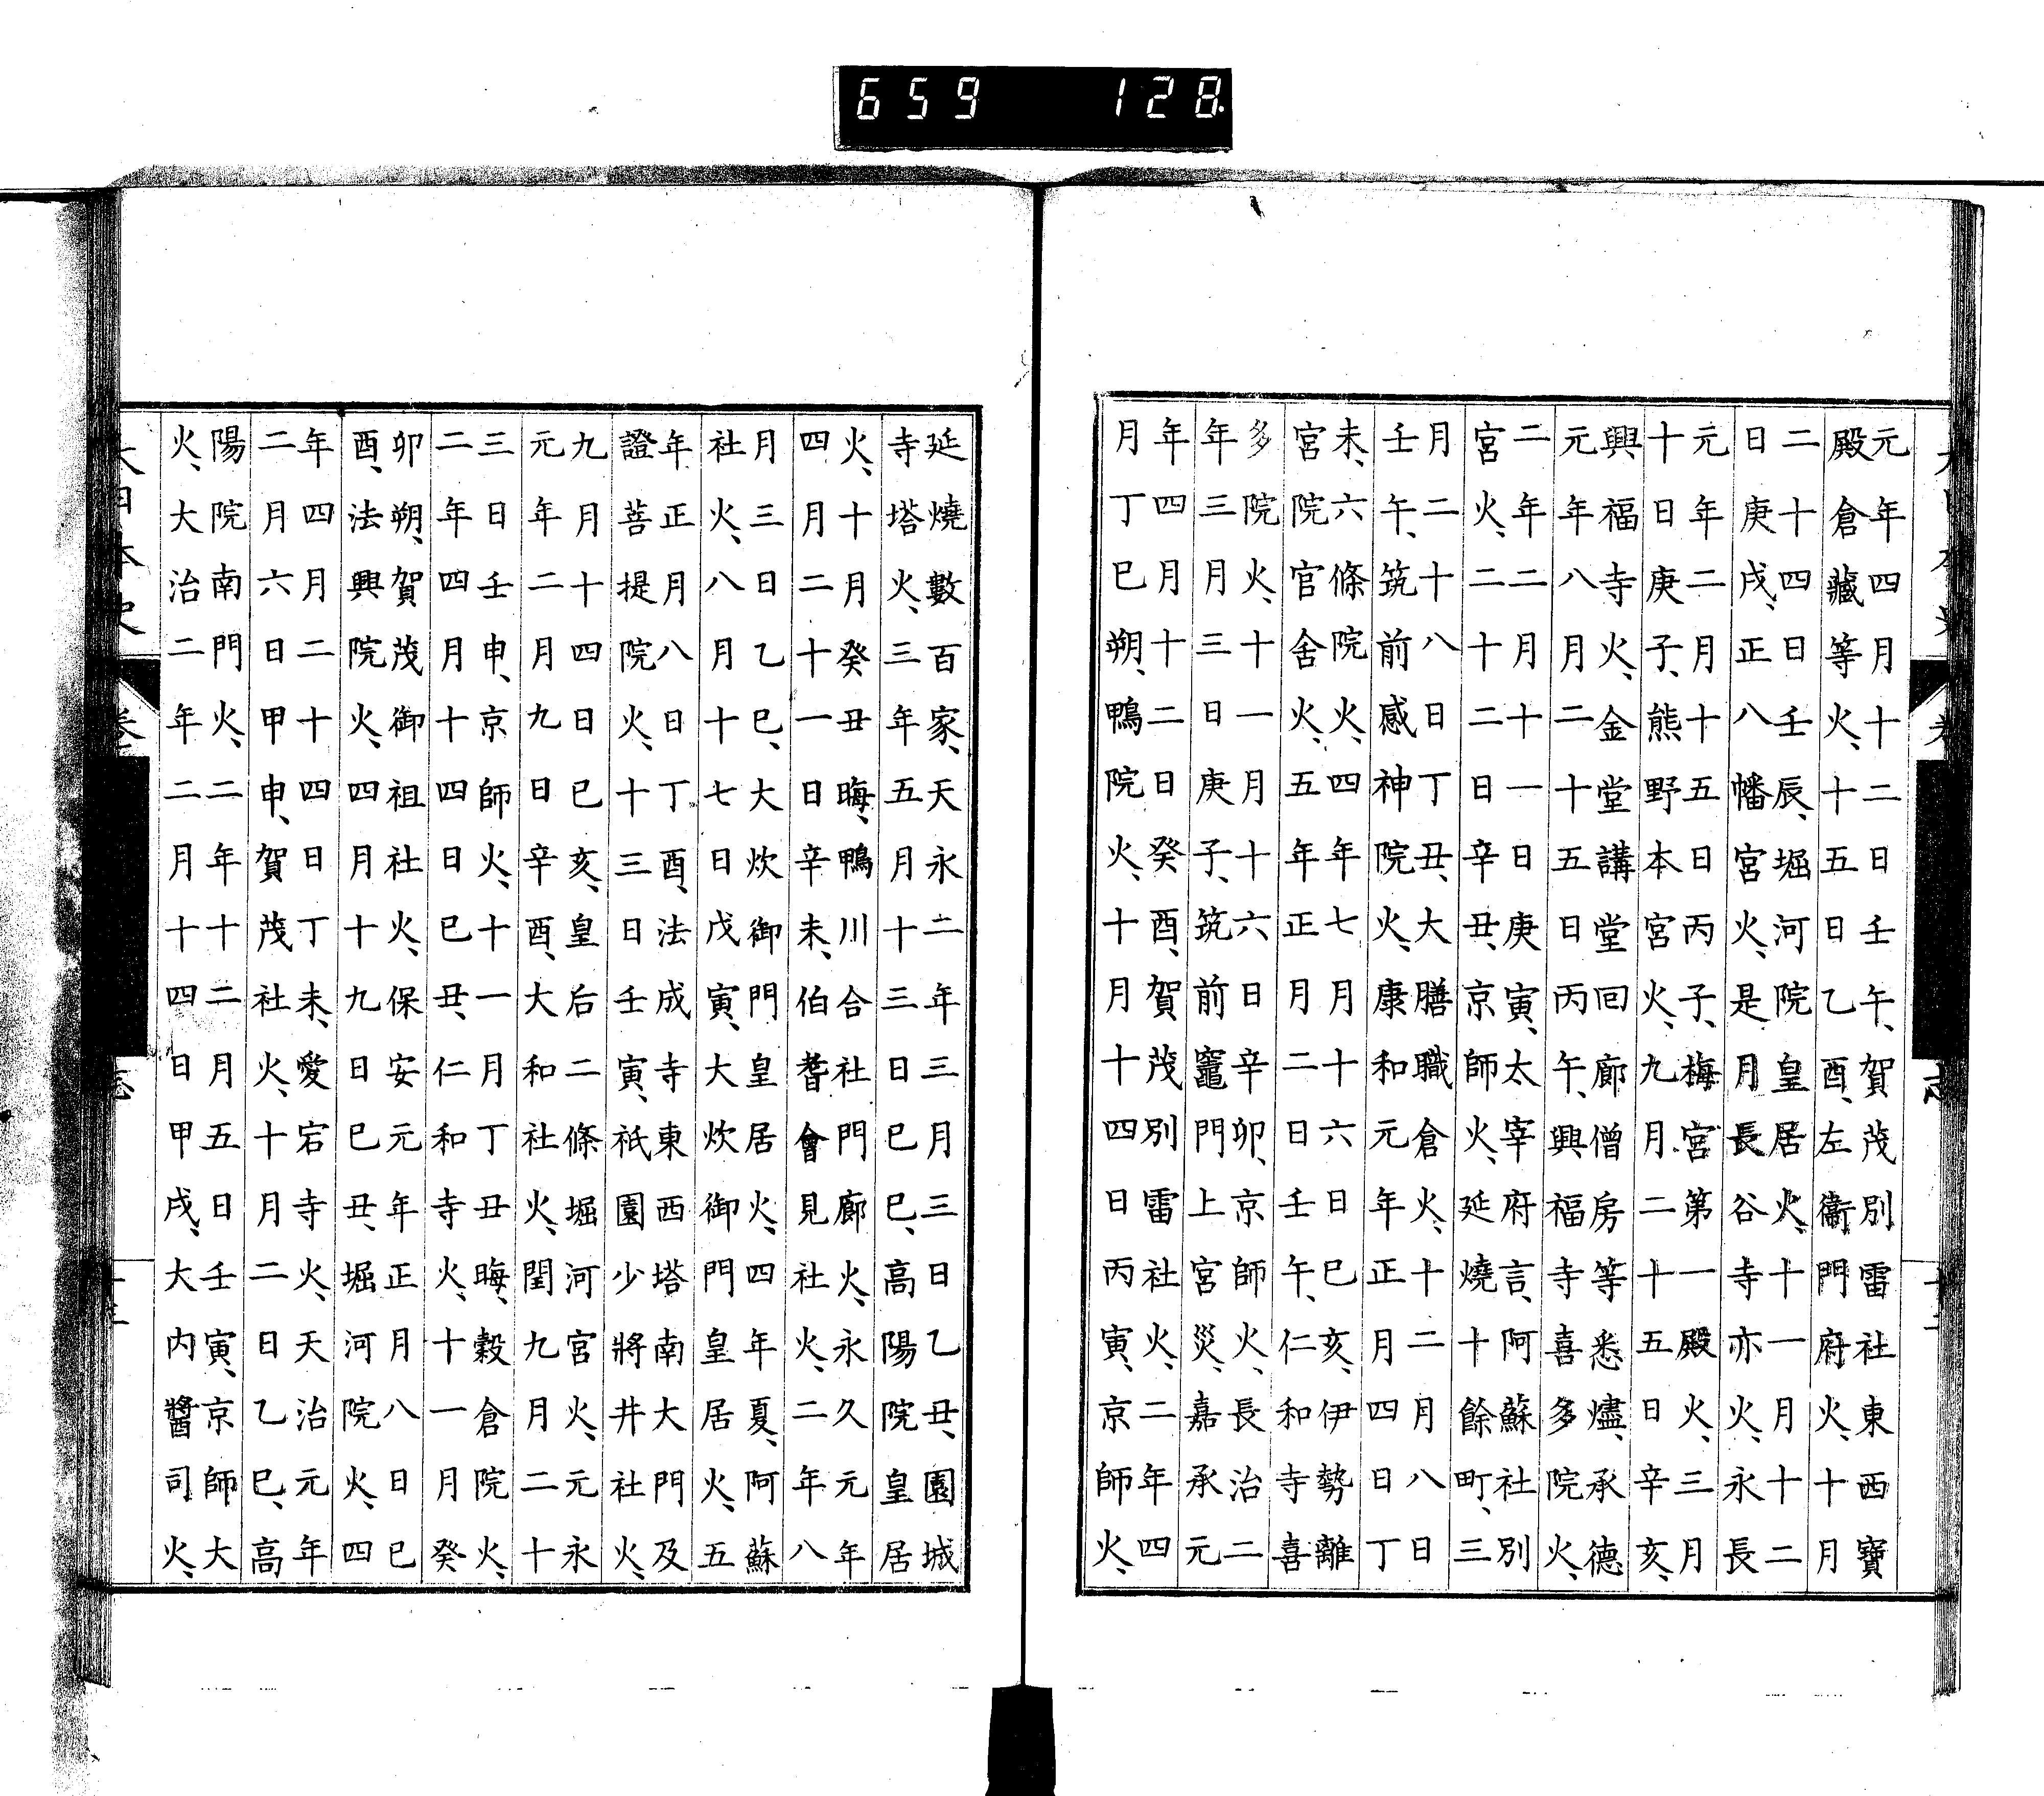 659 128
元年四月十二日壬午、賀茂別雷社東西寶
殿倉藏等火、十五日乙酉、左衞門府火、十月
二十四日壬辰、堀河院皇居火、十一月十二
日庚戌、正八幡宮火、是月長谷寺亦火、永長
元年二月十五日丙子、梅宮第一殿火、三月
十日庚子、熊野本宮火、九月二十五日辛亥、
興福寺火、金堂講堂回廊僧房等悉燼、承德
元年八月二十五日丙午、興福寺喜多院火、
二年二月十一日庚寅、太宰府言、阿蘇社別
宮火、二十二日辛丑、京師火、延燒十餘町、三
月二十八日丁丑、大膳職倉火、十二月八日
壬午、筑前感神院火、康和元年正月四日丁
未、六條院火、四年七月十六日巳亥、伊勢離
宮院官舍火、五年正月二日壬午、仁和寺喜
多院火、十一月十六日辛卯、京師火、長治二
年三月三日庚子、筑前竈門上宮災、嘉承元
年四月十二日癸酉、賀茂別雷社火、二年四
月丁巳朔、鴨院火、十月十四日丙寅、京師火、
延燒數百家、天永二年三月三日乙丑、園城
寺塔火、三年五月十三日巳巳、高陽院皇居
火、十月癸丑晦、鴨川合社門廊火、永久元年
四月二十一日辛未、伯耆會見社火、二年八
月三日乙巳、大炊御門皇居火、四年夏、阿蘇
社火、八月十七日戊寅、大炊御門皇居火、五
年正月八日丁酉、法成寺東西塔南大門及
證菩提院火、十三日壬寅、祇園少將井社火、
九月十四日巳亥、皇后二條堀河宮火、元永
元年二月九日辛酉、大和社火、閏九月二十
三日壬申、京師火、十一月丁丑晦、穀倉院火、
二年四月十四日巳丑、仁和寺火、十一月癸
卯朔、賀茂御祖社火、保安元年正月八日巳
酉、法興院火、四月十九日巳丑、堀河院火、四
年四月二十四日丁未、愛宕寺火、天治元年
二月六日甲申、賀茂社火、十月二日乙巳、高
陽院南門火、二年十二月五日壬寅、京師大
火、大治二年二月十四日甲戌、大内醬司火、
大日本史